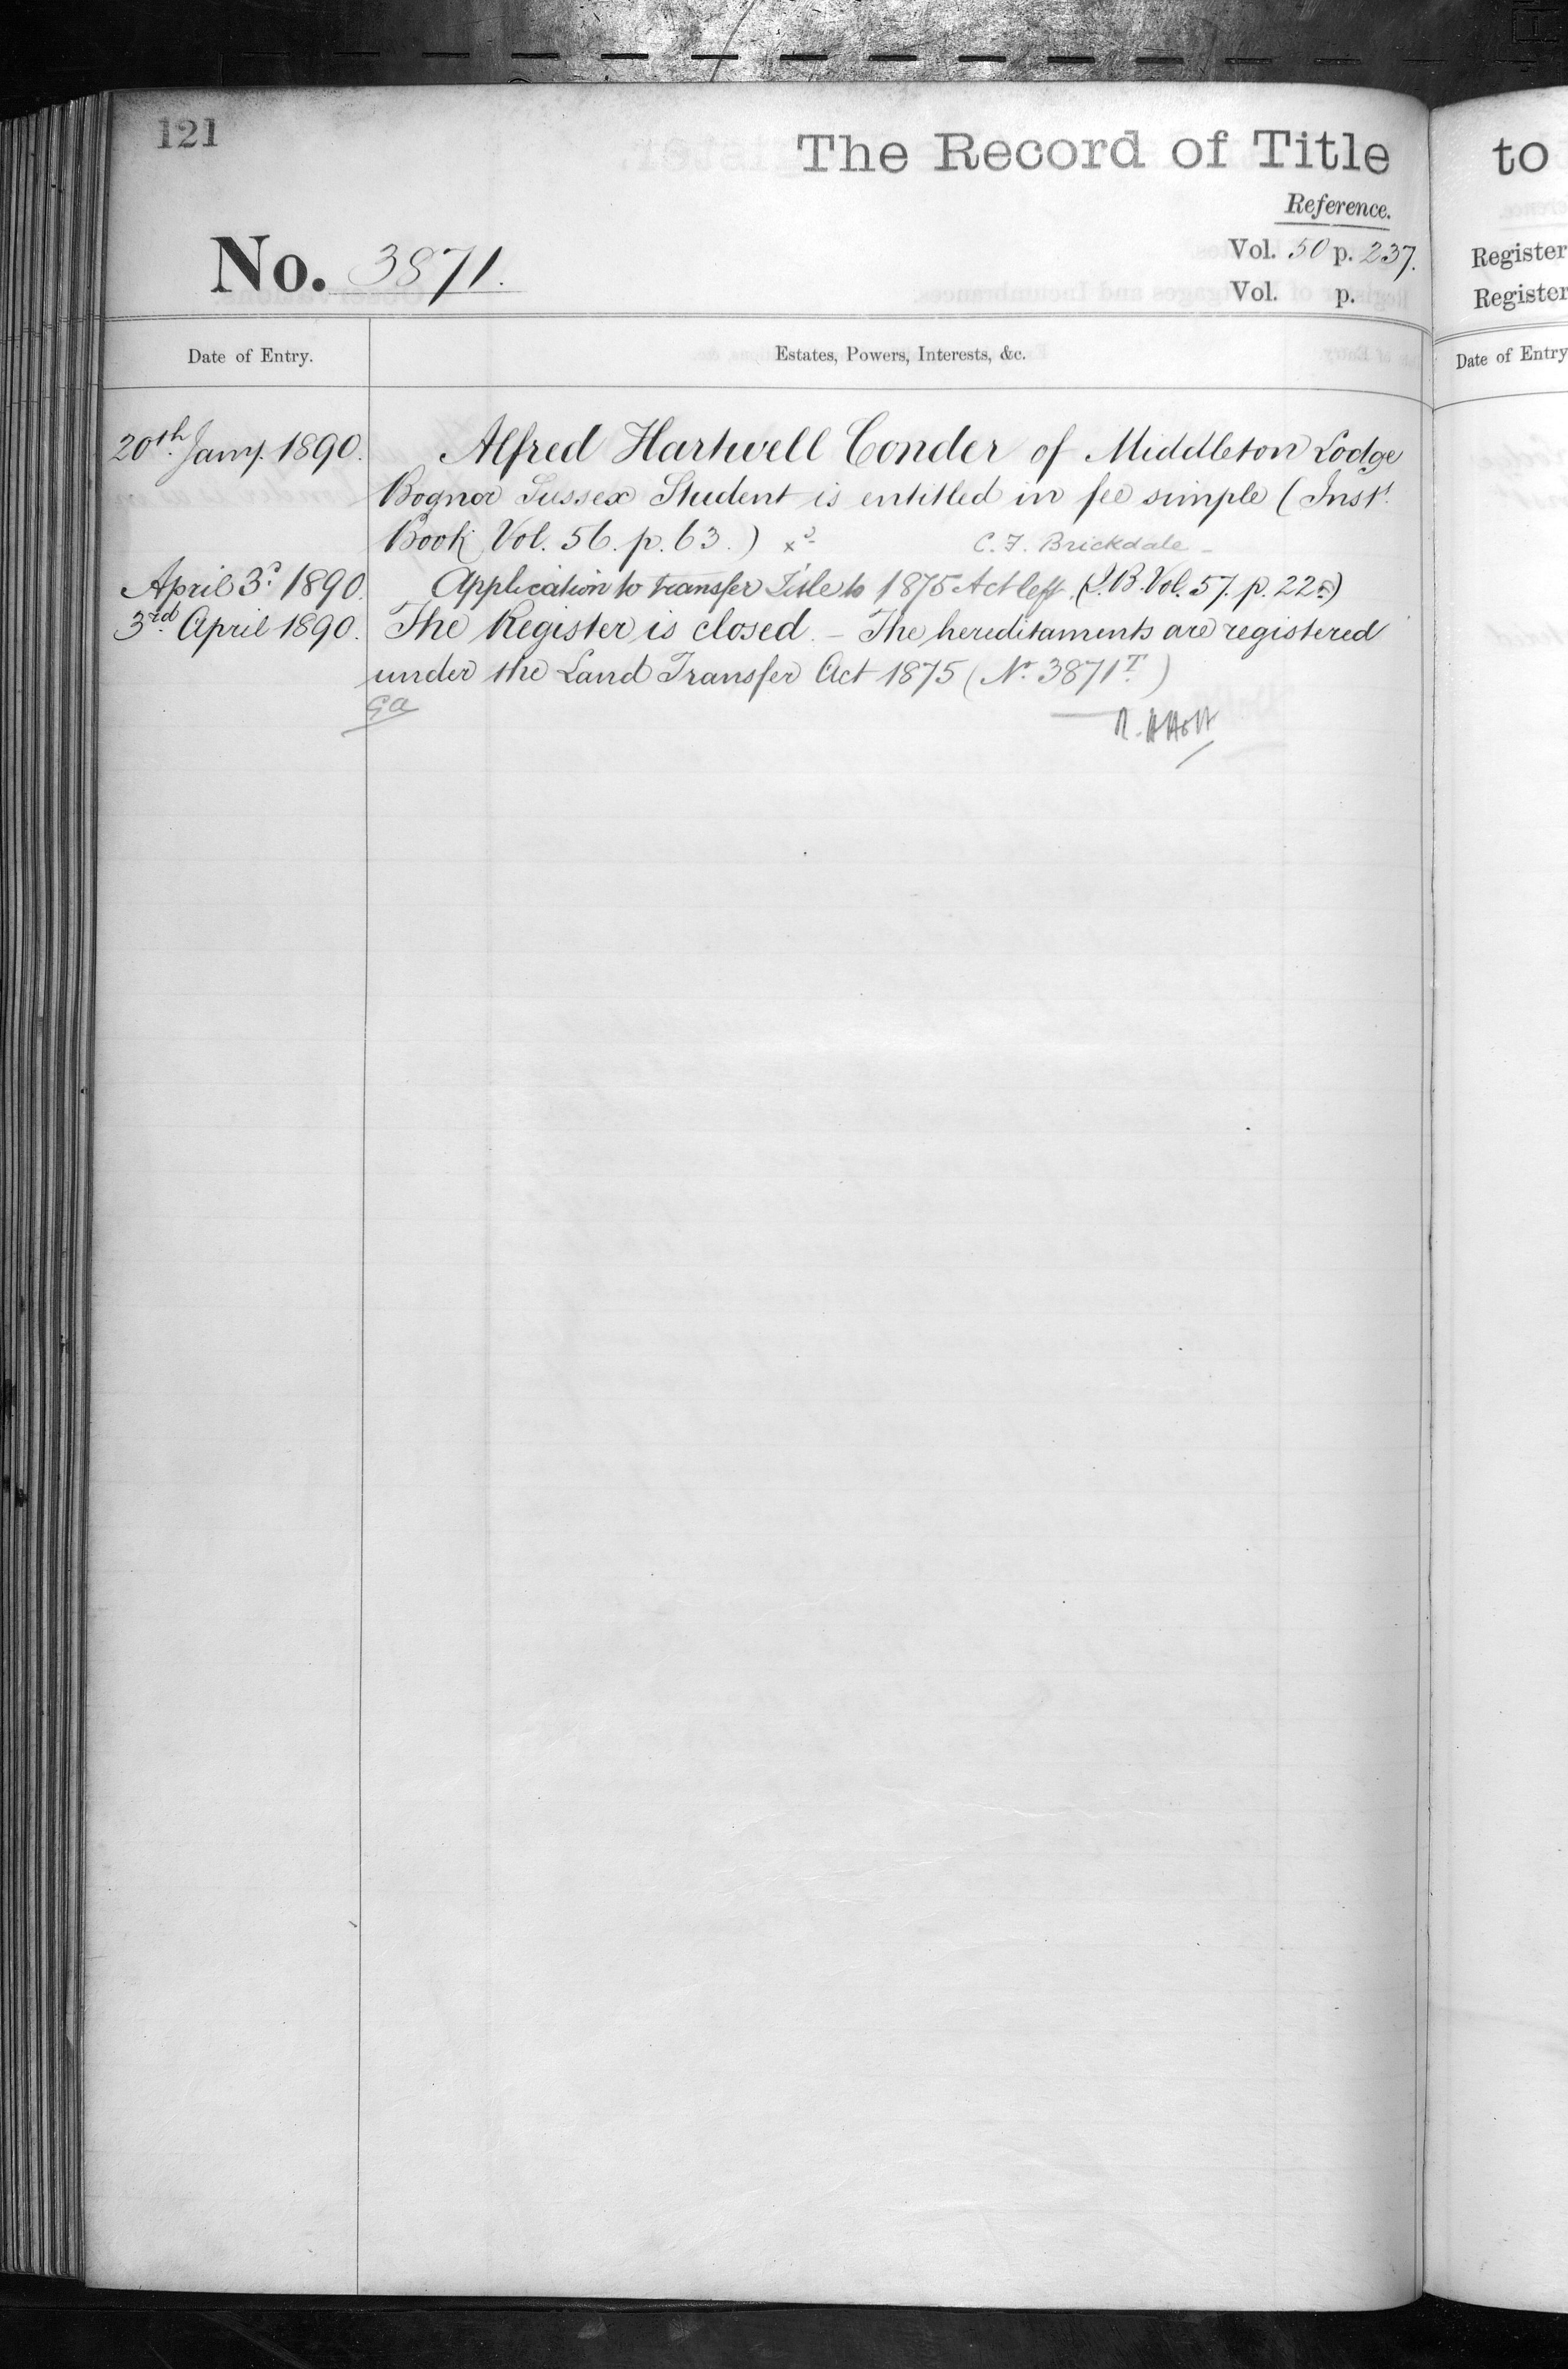 121
The Record of Title
Reference.
No. 3871.
Vol. 50 p. 237.
Vol. p.
Date of Entry.
Estates, Powers, Interests, &c.
20th. Jany. 1890.
Alfred Hartwell Conder of Middleton Lodge
Bognor Sussex Student is entitled in fee simple (Inst.
Book Vol. 56. p. 63.)
C. F. Brickdale
April 3d. 1890.
Application to transfer Title to 1875 Act left. (I.B. Vol. 57. p. 22
3rd. April 1890.
The Register is closed. – The hereditaments are registered
under the Land Transfer Act 1875 (No. 3871T.)
Ga
to
Register
Register
Date of Entry